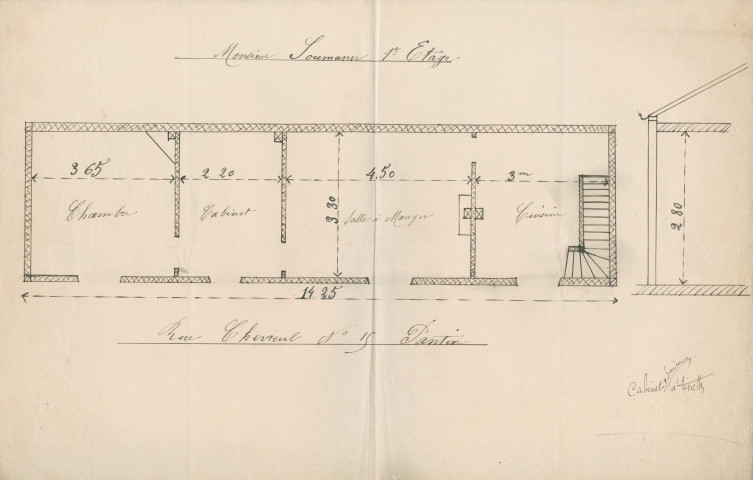 Monsieur Soumann 1er Etage
3 65
2 20
4.50
3m
Chambre
Cabinet
3 30
Salle à Manger
Cuisine
2 80
14 25
Rue Chevreul No 15 Pantin
Cabinet